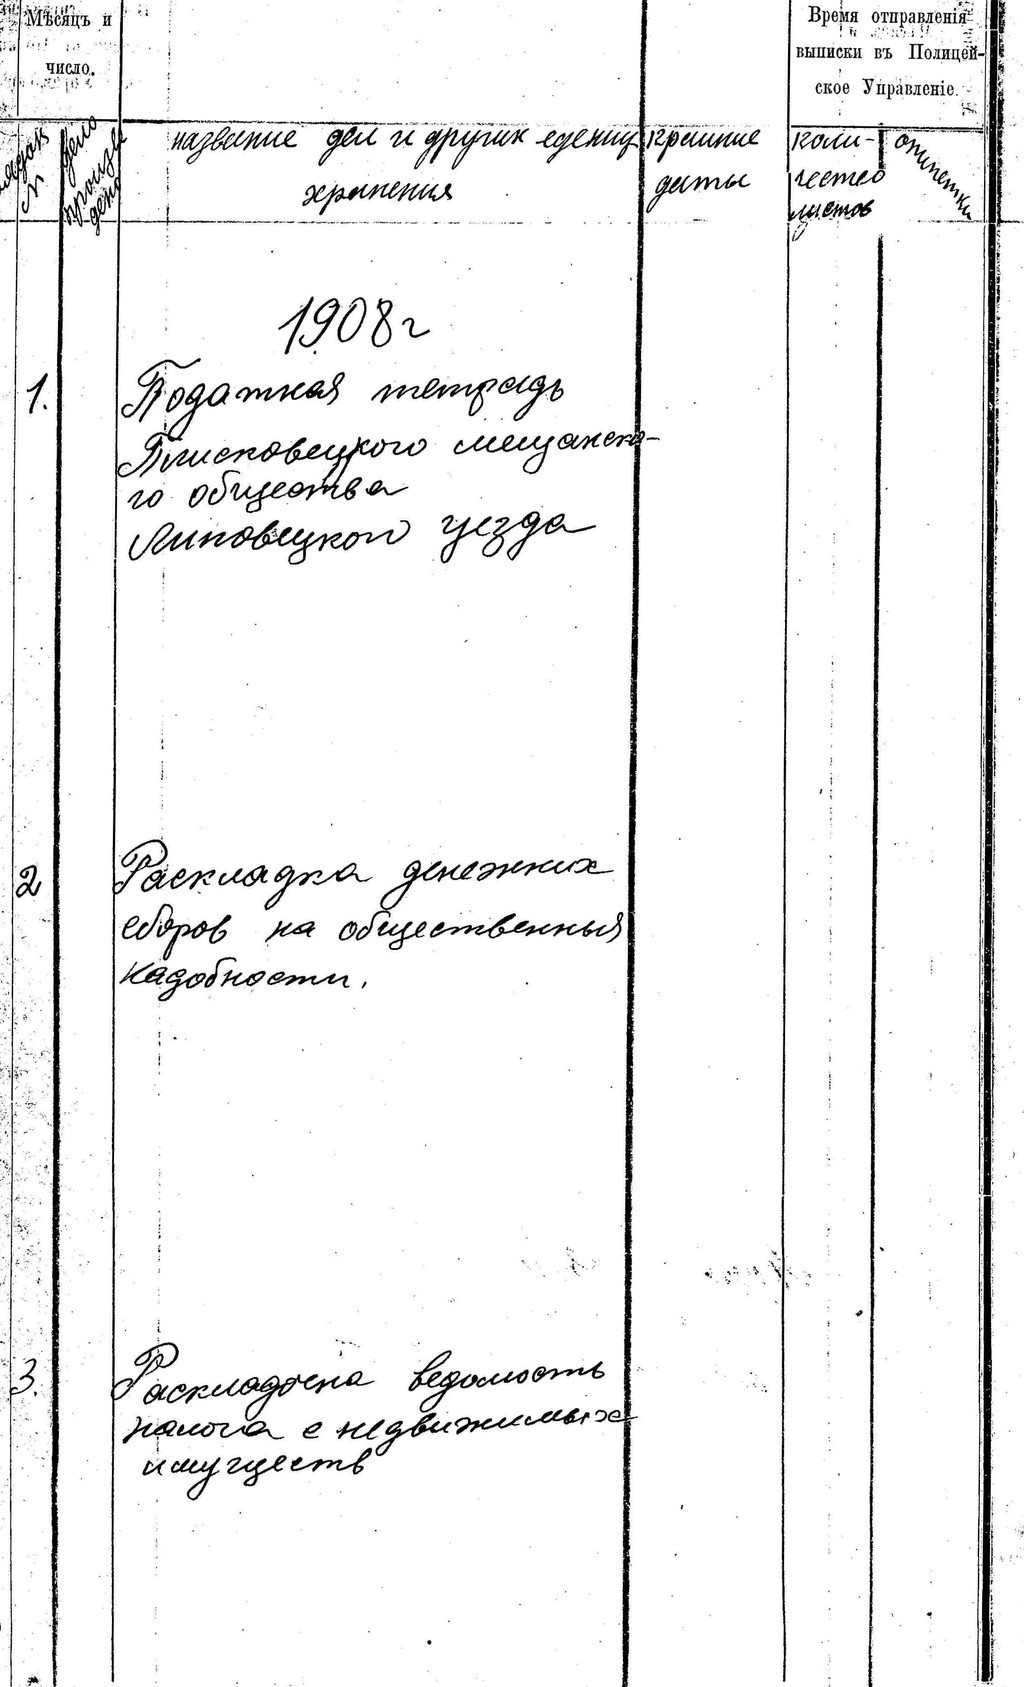 Мѣсяцъ и
число.
Время отправленія
выписки въ Полицей-
ское Управленіе.
№
дело
произв
дено
название дел и других едениц
хранения
крайние
даты
коли-
чество
листов
1908 г
1. Податная тетрадь
Плисковецкого мещанско-
го общества
Липовецкой уезда
2 Раскладка денежних
сборов на общественныя
надобности.
3. Раскладочна ведомость
налога с недвижимых
имуществ